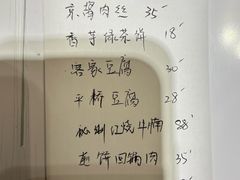 京酱肉丝 35
香芋绿茶饼 18
客家豆腐 30
平桥豆腐 28
秘制红烧牛腩 88
煎饼回锅肉 35